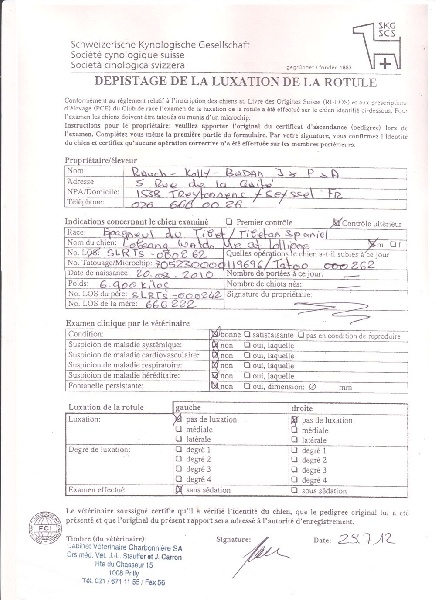 SKG
SCS
Schweizerische Kynologische Gesellschaft
Société cynologique suisse
Società cinologica svizzera
gegründet / fondée 1883
DEPISTAGE DE LA LUXATION DE LA ROTULE
Conformément au règlement relatif à l'inscription des chiens au Livre des Origines Suisse (RI-LOS) et aux prescriptions
d'élevage (PCE) du Club de race l'examen de la luxation de la rotule a été effectué sur le chien identifié ci-dessus. Pour
l'examen les chiens doivent être tatoués ou munis d'un microchip.
Instructions pour le propriétaire: veuillez apporter l'original du certificat d'ascendance (pedigree) lors de
l'examen. Complétez vous même la première partie du formulaire. Par votre signature, vous confirmez l'identité
du chien et certifiez qu'aucune opération corrective n'a été effectuée sur les membres postérieurs.
Propriétaire/éleveur
Nom
Adresse 5 Rue de la
NPA/Domicile: 1538
Téléphone:
Indications concernant le chien examiné Premier contrôle Contrôle ultérieur
Race: Epagneul du Tibet / Tibetan Spaniel
Nom du chien: m f
No LOS: SLRTS-000262 Quelles opérations le chien a-t-il subies à ce jour
No. Tatouage/Microchip:
Date de naissance 20.08.2010 Nombre de portées à ce jour:
Poids: 6.900 kilos Nombre de chiots nés:
No. LOS du père: SLRTS-000242 Signature du propriétaire:
No. LOS de la mère: 660222
Examen clinique par le vétérinaire
Condition: bonne satisfaisante pas en condition de reproduire
Suspicion de maladie systémique: non oui, laquelle
Suspicion de maladie cardiovasculaire: non oui, laquelle
Suspicion de maladie respiratoire: non oui, laquelle
Suspicion de maladie héréditaire: non oui, laquelle
Fontanelle persistante: non oui, dimension: Ø mm
Luxation de la rotule gauche droite
Luxation: pas de luxation pas de luxation
médiale médiale
latérale latérale
Degré de luxation: degré 1 degré 1
degré 2 degré 2
degré 3 degré 3
degré 4 degré 4
Examen effectué: sans sédation sous sédation
Le vétérinaire soussigné certifie qu'il a vérifié l'identité du chien, que le pedigree original lui a été
présenté et que l'original du présent rapport sera adressé à l'autorité d'enregistrement.
FCI
Timbre (du vétérinaire) Signature: Date: 25.7.12
Cabinet Vétérinaire Charbonnière SA
Drs méd. Vet. J.-L. Stauffer et J. Carron
Rte du Chasseur 15
1008 Prilly
Tél. 021 / 671 11 55 / Fax 56